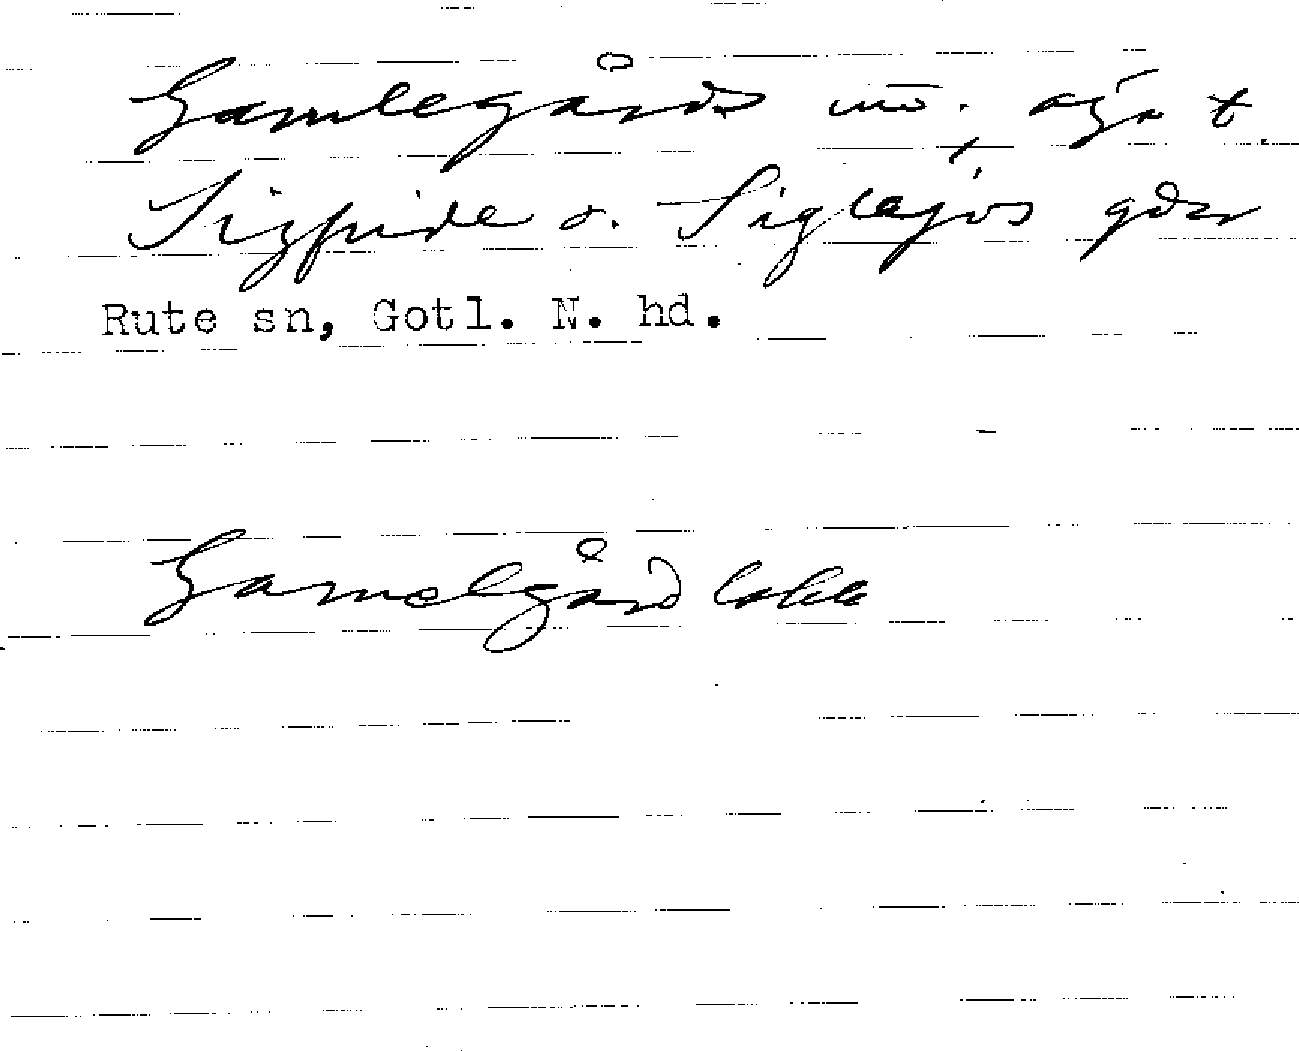 Gamlegårds
Sigfride o. Siglajvs gdr
Rute sn, Gotl. N. hd.
Gamelgård